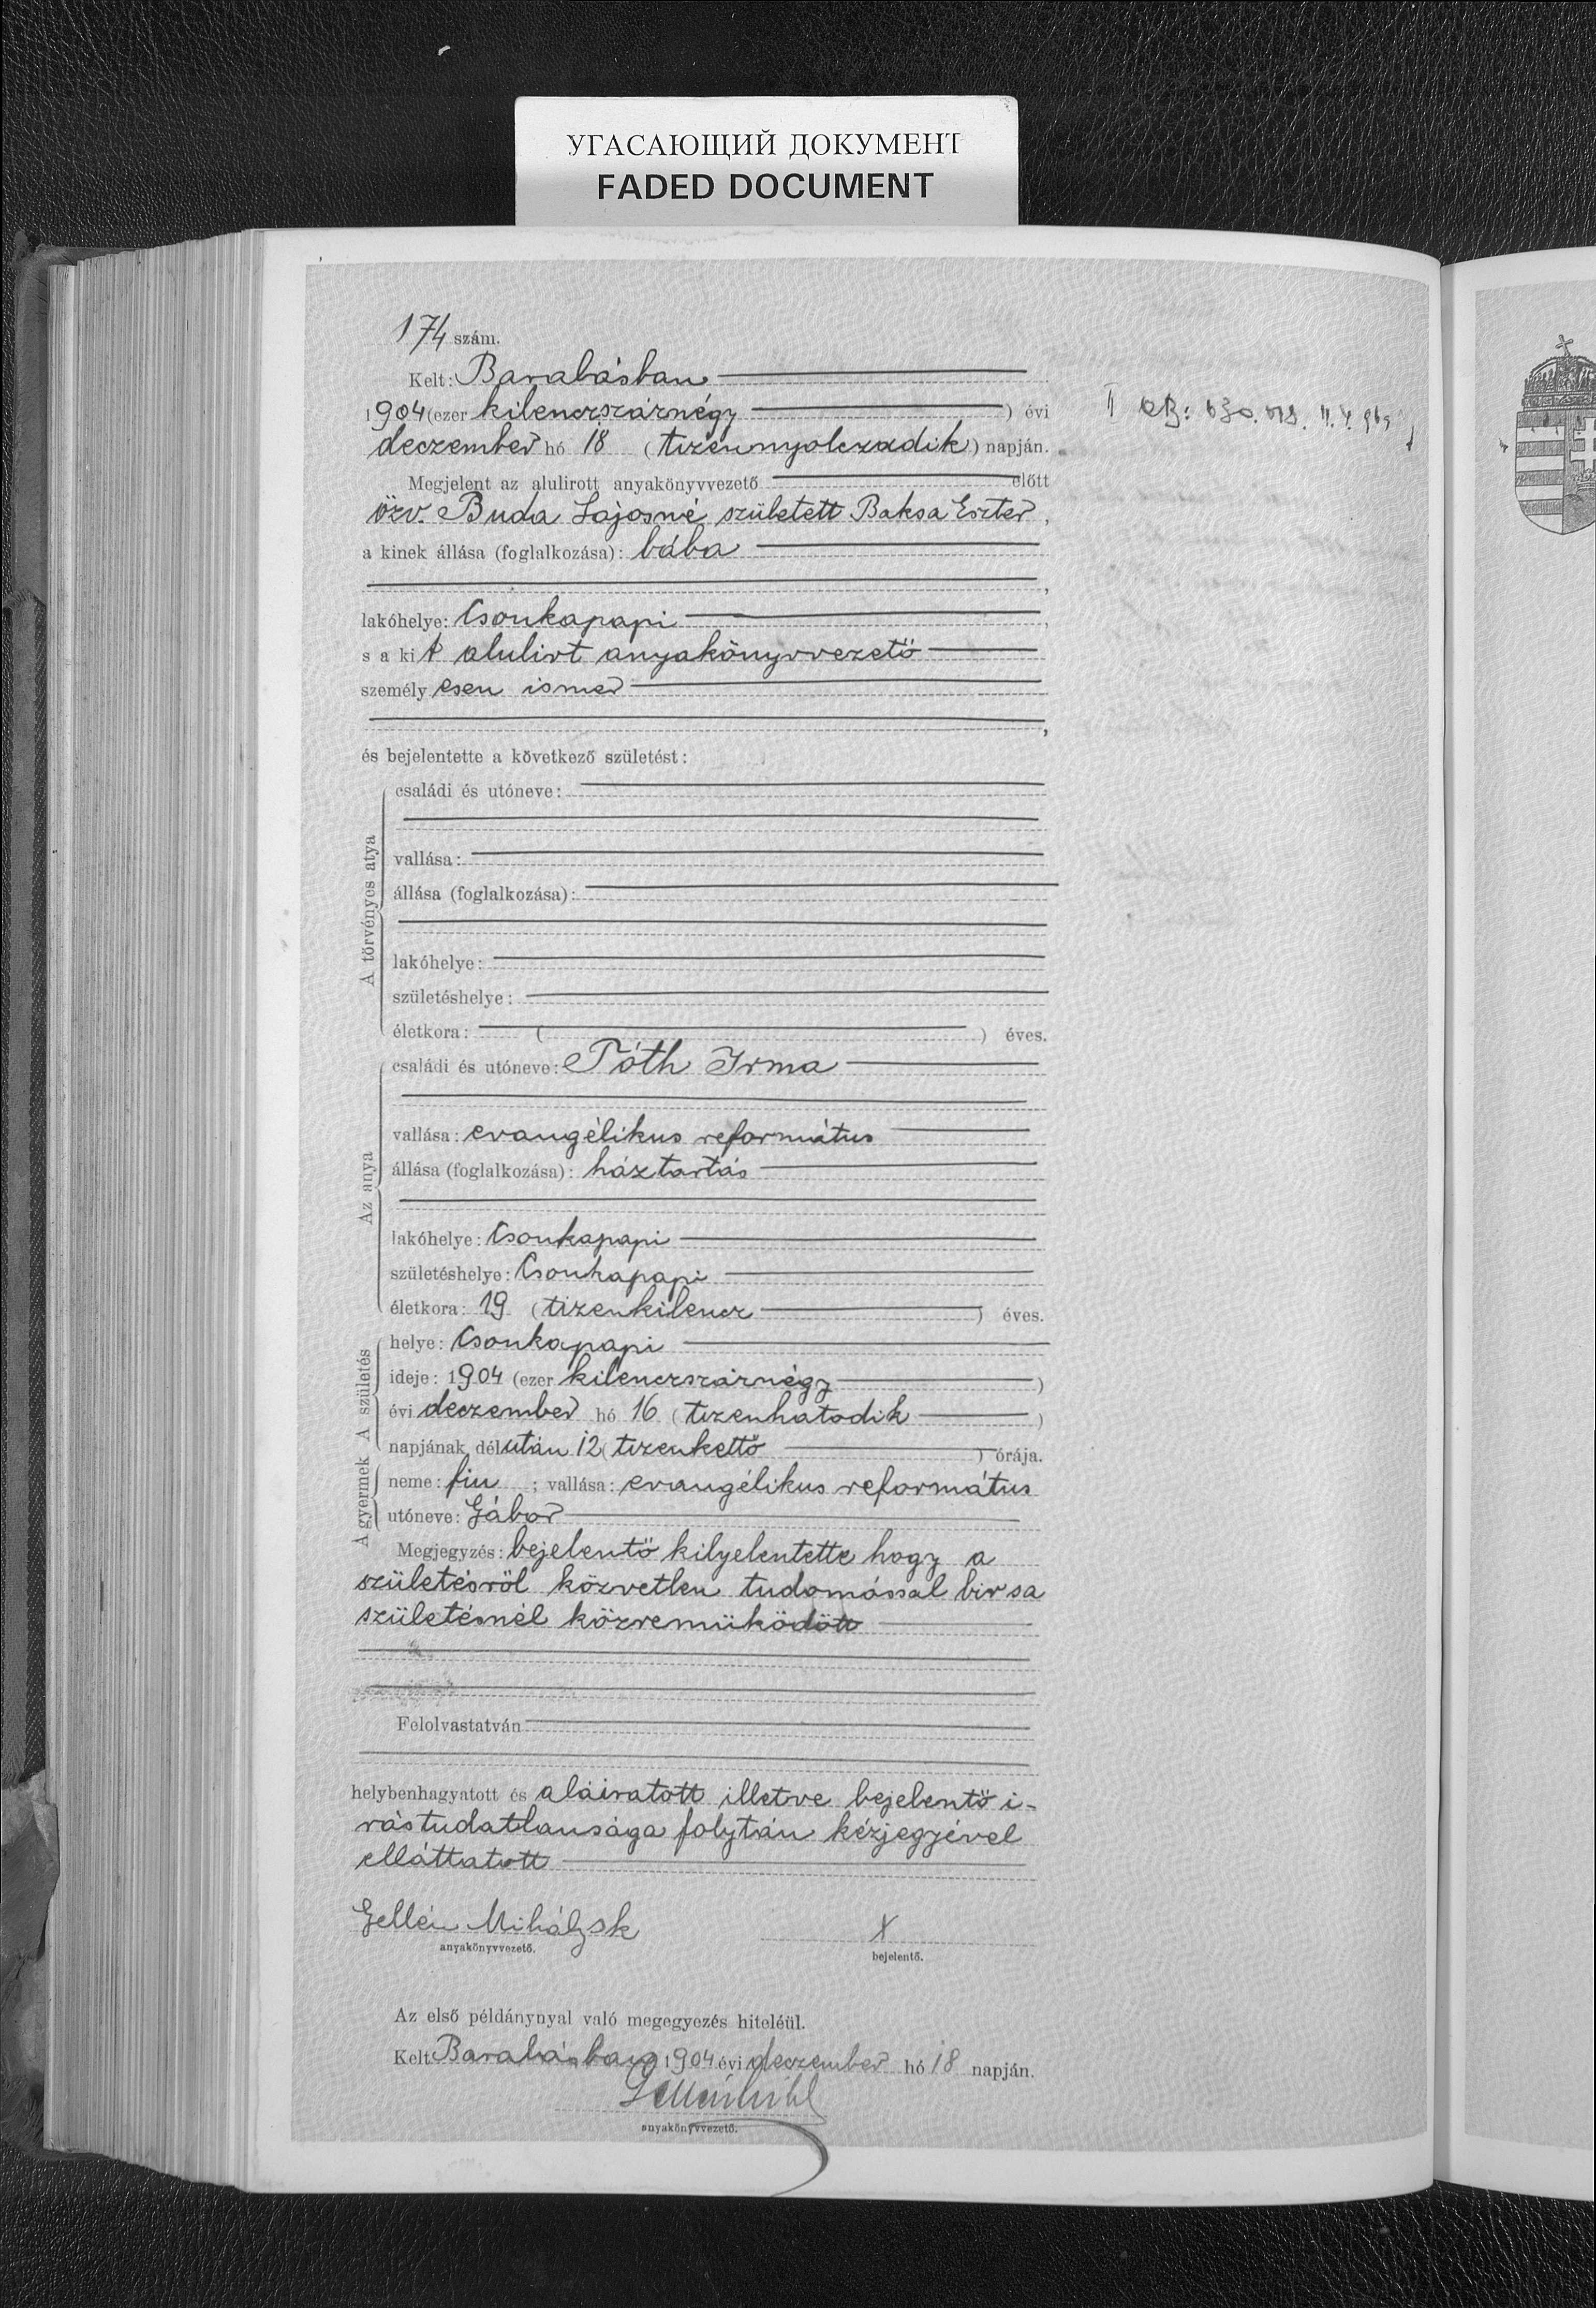 УГАСАЮЩИЙ ДОКУМЕНТ
FADED DOCUMENT
174 szám.
Kelt: Barabásban
1904 (ezer kilenczszáznégy) évi
deczember hó 18 (tizennyolczadik) napján.
Megjelent az alulirott anyakönyvvezető előtt
özv. Buda Lajosné született Baksa Eszter,
a kinek állása (foglalkozása): bába
lakóhelye: Csonkapapi,
s a kit alulirt anyakönyvvezető
személyesen ismer
és bejelentette a következő születést:
A törvényes atya
családi és utóneve:
vallása:
állása (foglalkozása):
lakóhelye:
születéshelye:
életkora: ( ) éves.
Az anya
családi és utóneve: Tóth Irma
vallása: evangélikus református
állása (foglalkozása): háztartás
lakóhelye: Csonkapapi
születéshelye: Csonkapapi
életkora: 19 (tizenkilencz) éves.
A születés
helye: Csonkapapi
ideje: 1904 (ezer kilenczszáznégy)
évi deczember hó 16 (tizenhatodik)
napjának délután 12 (tizenkettő) órája.
A gyermek
neme: fiu; vallása: evangélikus református
utóneve: Gábor
Megjegyzés: bejelentő kilyelentette hogy a
születésröl közvetlen tudomással bir s a
születésnél közremüködött
Felolvastatván
helybenhagyatott és aláiratott illetve bejelentő i-
rástudatlansága folytán kézjegyével
elláttatott
Gellén Mihály sk
anyakönyvvezető.
X
bejelentő.
Az első példánynyal való megegyezés hiteléül.
Kelt Barabásban 1904 évi deczember hó 18 napján.
anyakönyvvezető.